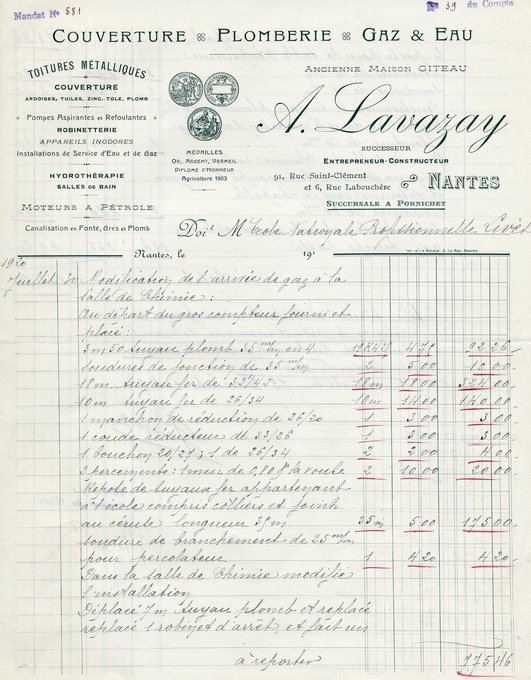 Mandat № 581
№ 39 du Compte
COUVERTURE PLOMBERIE GAZ & EAU
TOITURES MÉTALLIQUES
COUVERTURE
ARDOISES, TUILES, ZINC, TOLE, PLOMB
Pompes Aspirantes et Refoulantes
ROBINETTERIE
APPAREILS INODORES
Installations de Service d'Eau et de Gaz
HYDROTHÉRAPIE
SALLES DE BAIN
MOTEURS A PÉTROLE
Canalisation en Fonte, Grès et Plomb
MÉDAILLES
OR, ARGENT, VERMEIL
DIPLOME D'HONNEUR
Agriculture 1903
ANCIENNE MAISON GITEAU
A. Lavazay
SUCCESSEUR
ENTREPRENEUR-CONSTRUCTEUR
91, RUE SAINT-CLÉMENT
et 6, RUE LABOUCHÈRE
NANTES
SUCCURSALE A PORNICHET
Doit M Ecole Nationale Professionnelle Livet
Nantes, le 19
1920
Juillet 30 Modification de l'arrivée de gaz à la
salle de Chimie :
Au départ du gros compteur fourni et
placé :
3m50 tuyau plomb 35 m/m en 4 19K42 4 75 92 26
soudures de jonction de 35 m/m 2 5 00 10 00
18m tuyau fer de 33/43 18m 18 00 324 00
10m tuyau fer de 26/34 10m 14 00 140 00
1 manchon de réduction de 26/20 1 3 00 3 00
1 coude réducteur de 33/26 1 3 00 3 00
1 bouchon 20/27 ; 1 de 26/34 2 2 00 4 00
2 percements : 1 mur de 0,80 la voute 2 10 00 20 00
de tuyaux fer appartenant
à l'école compris colliers et joints
au céruse longueur 35m 35m 5 00 175 00
soudure de branchement de 25 m/m
pour percolateur 1 4 20 4 20
Dans la salle de Chimie modifié
l'installation
Déplacé 7m tuyau plomb et replacé
replacé 1 robinet d'arrêt et fait un
à reporter 775 46